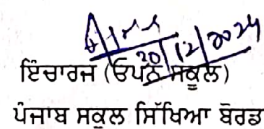 20/12/2024
ਇੰਚਾਰਜ (ਓਪਨ ਸਕੂਲ)
ਪੰਜਾਬ ਸਕੂਲ ਸਿੱਖਿਆ ਬੋਰਡ